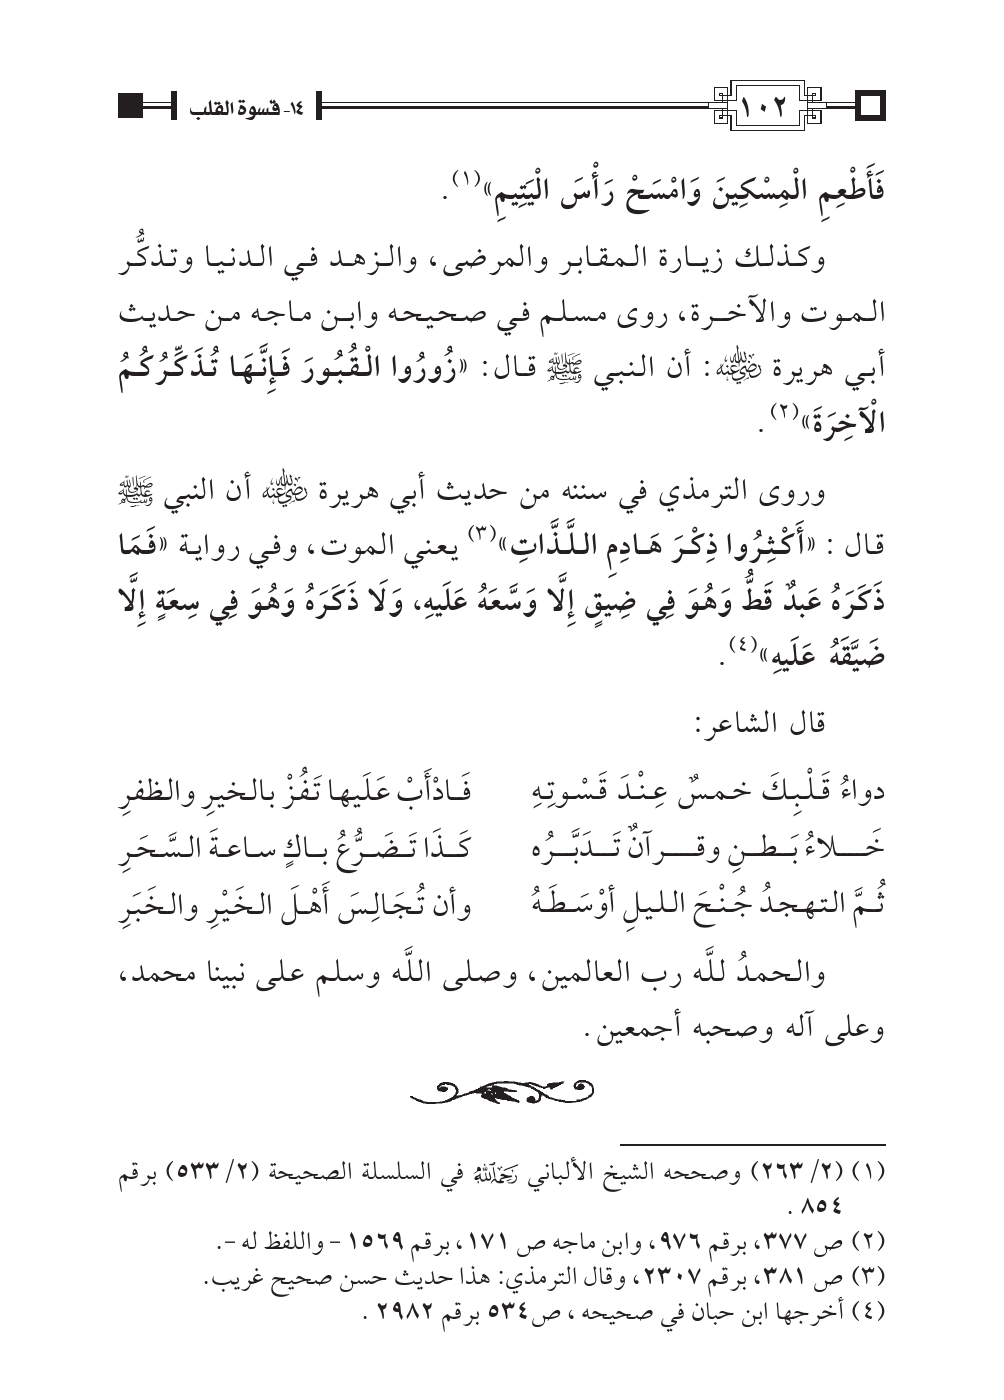 ١٠٢
١٤- قسوة القلب
فَأَطْعِمِ الْمِسْكِينَ وَامْسَحْ رَأْسَ الْيَتِيمِ»(١).
وكذلك زيارة المقابر والمرضى، والزهد في الدنيا وتذكُّر
الموت والآخرة، روى مسلم في صحيحه وابن ماجه من حديث
أبي هريرة رضي الله عنه: أن النبي ﷺ قال: «زُورُوا الْقُبُورَ فَإِنَّهَا تُذَكِّرُكُمُ
الْآخِرَةَ»(٢).
وروى الترمذي في سننه من حديث أبي هريرة رضي الله عنه أن النبي ﷺ
قال: «أَكْثِرُوا ذِكْرَ هَادِمِ اللَّذَّاتِ»(٣) يعني الموت، وفي رواية «فَمَا
ذَكَرَهُ عَبدٌ قَطُّ وَهُوَ فِي ضِيقٍ إِلَّا وَسَّعَهُ عَلَيهِ، وَلَا ذَكَرَهُ وَهُوَ فِي سِعَةٍ إِلَّا
ضَيَّقَهُ عَلَيهِ»(٤).
قال الشاعر:
دواءُ قَلْبِكَ خمسٌ عِنْدَ قَسْوتِهِ فَادْأَبْ عَلَيها تَفُزْ بالخيرِ والظفرِ
خَلاءُ بَطنِ وقرآنٌ تَدَبَّرُه كَذَا تَضَرُّعُ باكٍ ساعةَ السَّحَرِ
ثُمَّ التهجدُ جُنْحَ الليلِ أوْسَطَهُ وأن تُجَالِسَ أَهْلَ الخَيْرِ والخَبَرِ
والحمدُ للَّه رب العالمين، وصلى اللَّه وسلم على نبينا محمد،
وعلى آله وصحبه أجمعين.
(١) (٢/ ٢٦٣) وصححه الشيخ الألباني رحمه الله في السلسلة الصحيحة (٢/ ٥٣٣) برقم
٨٥٤.
(٢) ص ٣٧٧، برقم ٩٧٦، وابن ماجه ص ١٧١، برقم ١٥٦٩ – واللفظ له –.
(٣) ص ٣٨١، برقم ٢٣٠٧، وقال الترمذي: هذا حديث حسن صحيح غريب.
(٤) أخرجها ابن حبان في صحيحه، ص٥٣٤ برقم ٢٩٨٢.